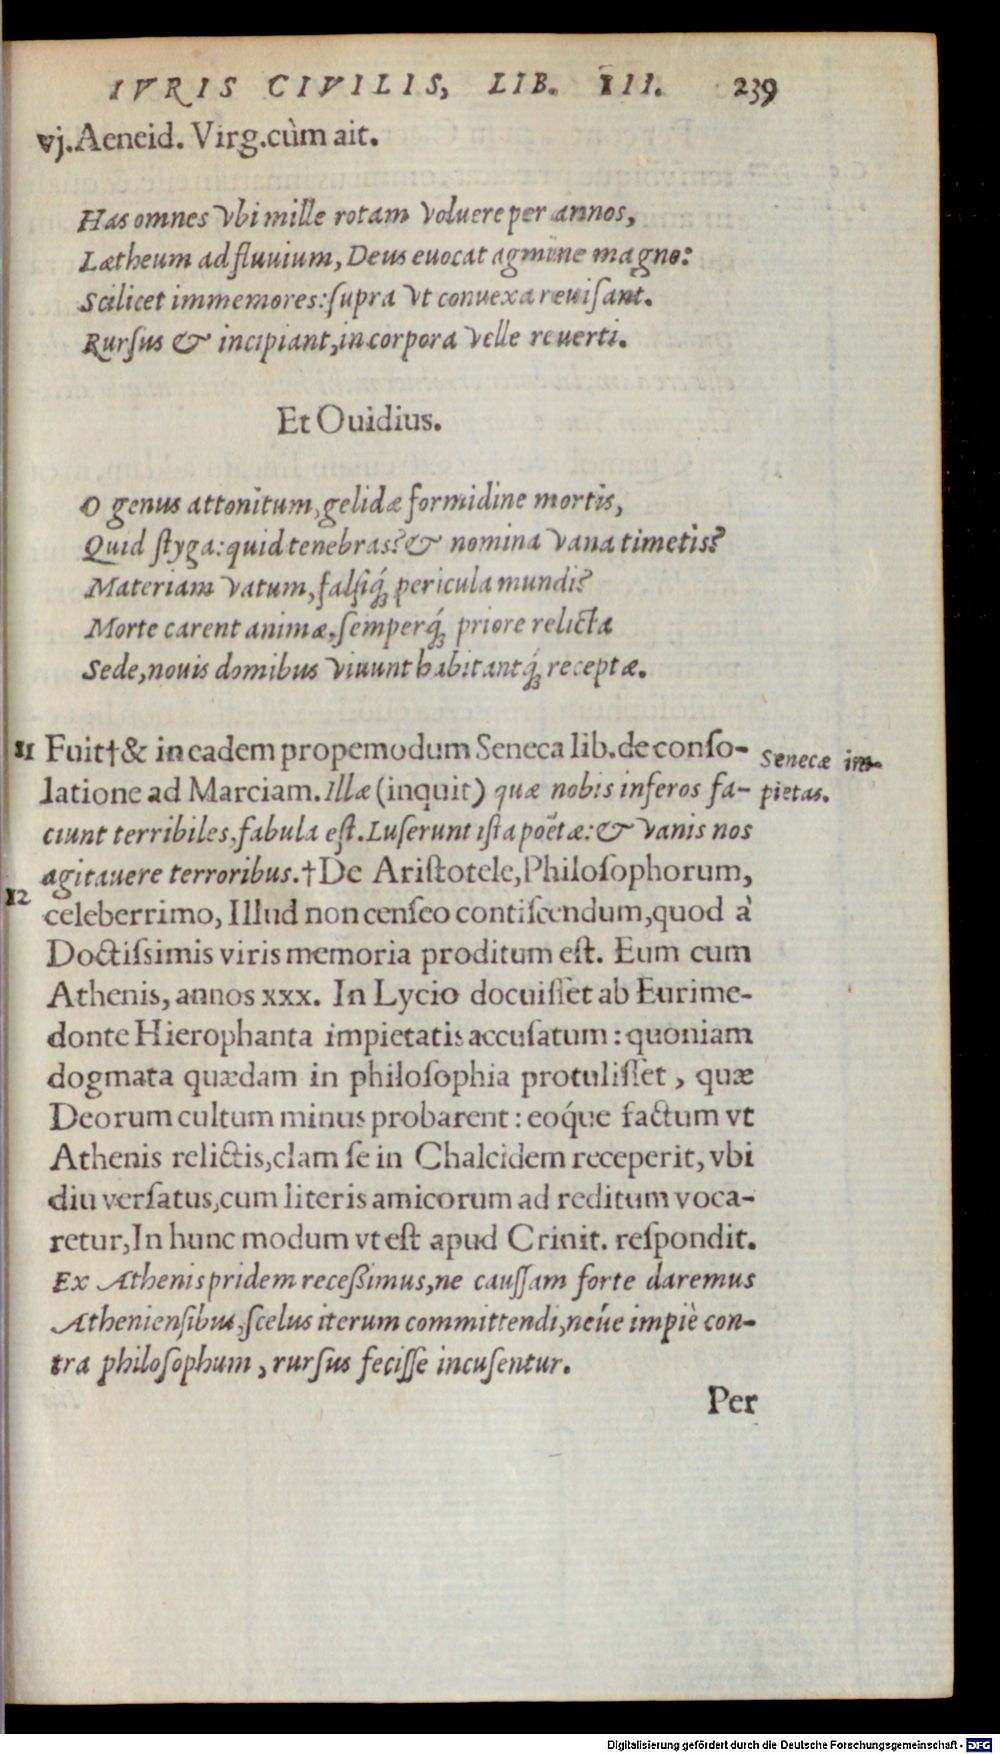 IVRIS CIVILIS, LIB. III. 239
vj. Aeneid. Virg. cùm ait.
Has omnes vbi mille rotam voluere per annos,
Lætheum ad fluuium, Deus euocat agmine magno:
Scilicet immemores: ſupra vt conuexa reuiſant.
Rurſus & incipiant, in corpora velle reuerti.
Et Ouidius.
O genus attonitum, gelidæ formidine mortis,
Quid ſtyga: quid tenebras? & nomina vana timetis?
Materiam vatum, falſiq́; pericula mundi?
Morte carent animæ, ſemperq́; priore relicta
Sede, nouis domibus viuunt habitantq́; receptæ.
11 Fuit† & in eadem propemodum Seneca lib. de conſo-
Senecæ im-
pietas.
latione ad Marciam. Illæ (inquit) quæ nobis inferos fa-
ciunt terribiles, fabula eſt. Luſerunt iſta poëtæ: & vanis nos
agitauere terroribus. † De Ariſtotele, Philoſophorum,
12
celeberrimo, Illud non cenſeo contiſcendum, quod à
Doctiſsimis viris memoria proditum eſt. Eum cum
Athenis, annos xxx. In Lycio docuiſſet ab Eurime-
donte Hierophanta impietatis accuſatum: quoniam
dogmata quædam in philoſophia protuliſſet, quæ
Deorum cultum minus probarent: eoq́ue factum vt
Athenis relictis, clam ſe in Chalcidem receperit, vbi
diu verſatus, cum literis amicorum ad reditum voca-
retur, In hunc modum vt eſt apud Crinit. reſpondit.
Ex Athenis pridem receßimus, ne cauſſam forte daremus
Athenienſibus, ſcelus iterum committendi, neúe impiè con-
tra philoſophum, rurſus feciſſe incuſentur.
Per
Digitalisierung gefördert durch die Deutsche Forschungsgemeinschaft - DFG